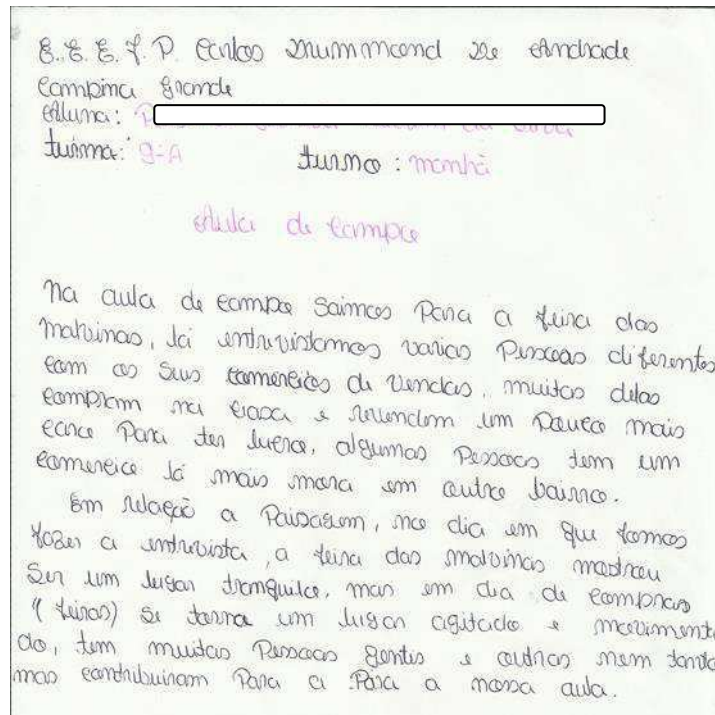 E.E.E.F.P. Carlos Drummond De Andrade
Campina Grande
Aluna:
turma: 9-A turno: manhã
Aula de Campo
Na aula de campo saimos Para a feira das
malvinas, lá entrevistamos varias Pessoas diferentes
com os seus comercios de vendas, muitas delas
compram na ceasa e revendem um Pouco mais
caro Para ter lucro, algumas Pessoas tem um
comercio lá mais mora em outro bairro.
Em relação a Paisagem, no dia em que fomos
fazer a entrevista, a feira das malvinas mostrou
Ser um lugar tranquilo, mas em dia de compras
"(feiras) se torna um lugar agitado e movimenta
do, tem muitas Pessoas gentis e outras nem tanto
mas contribuiram Para a Para a nossa aula.